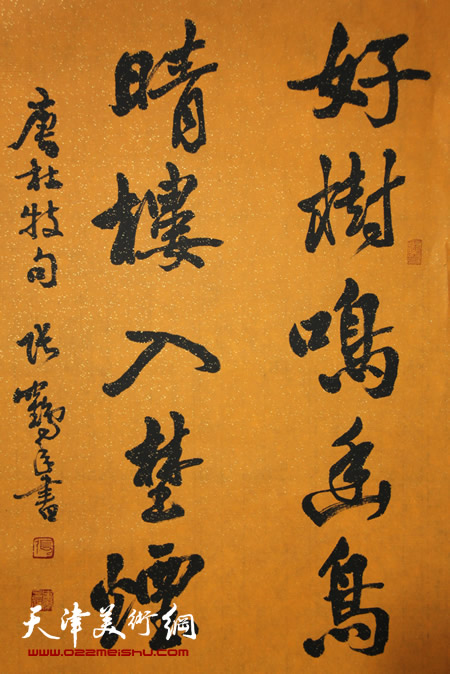 好樹鳴幽鳥
晴樓入埜煙
唐杜牧句 張鶴年書
天津美術網
www.022meishu.com